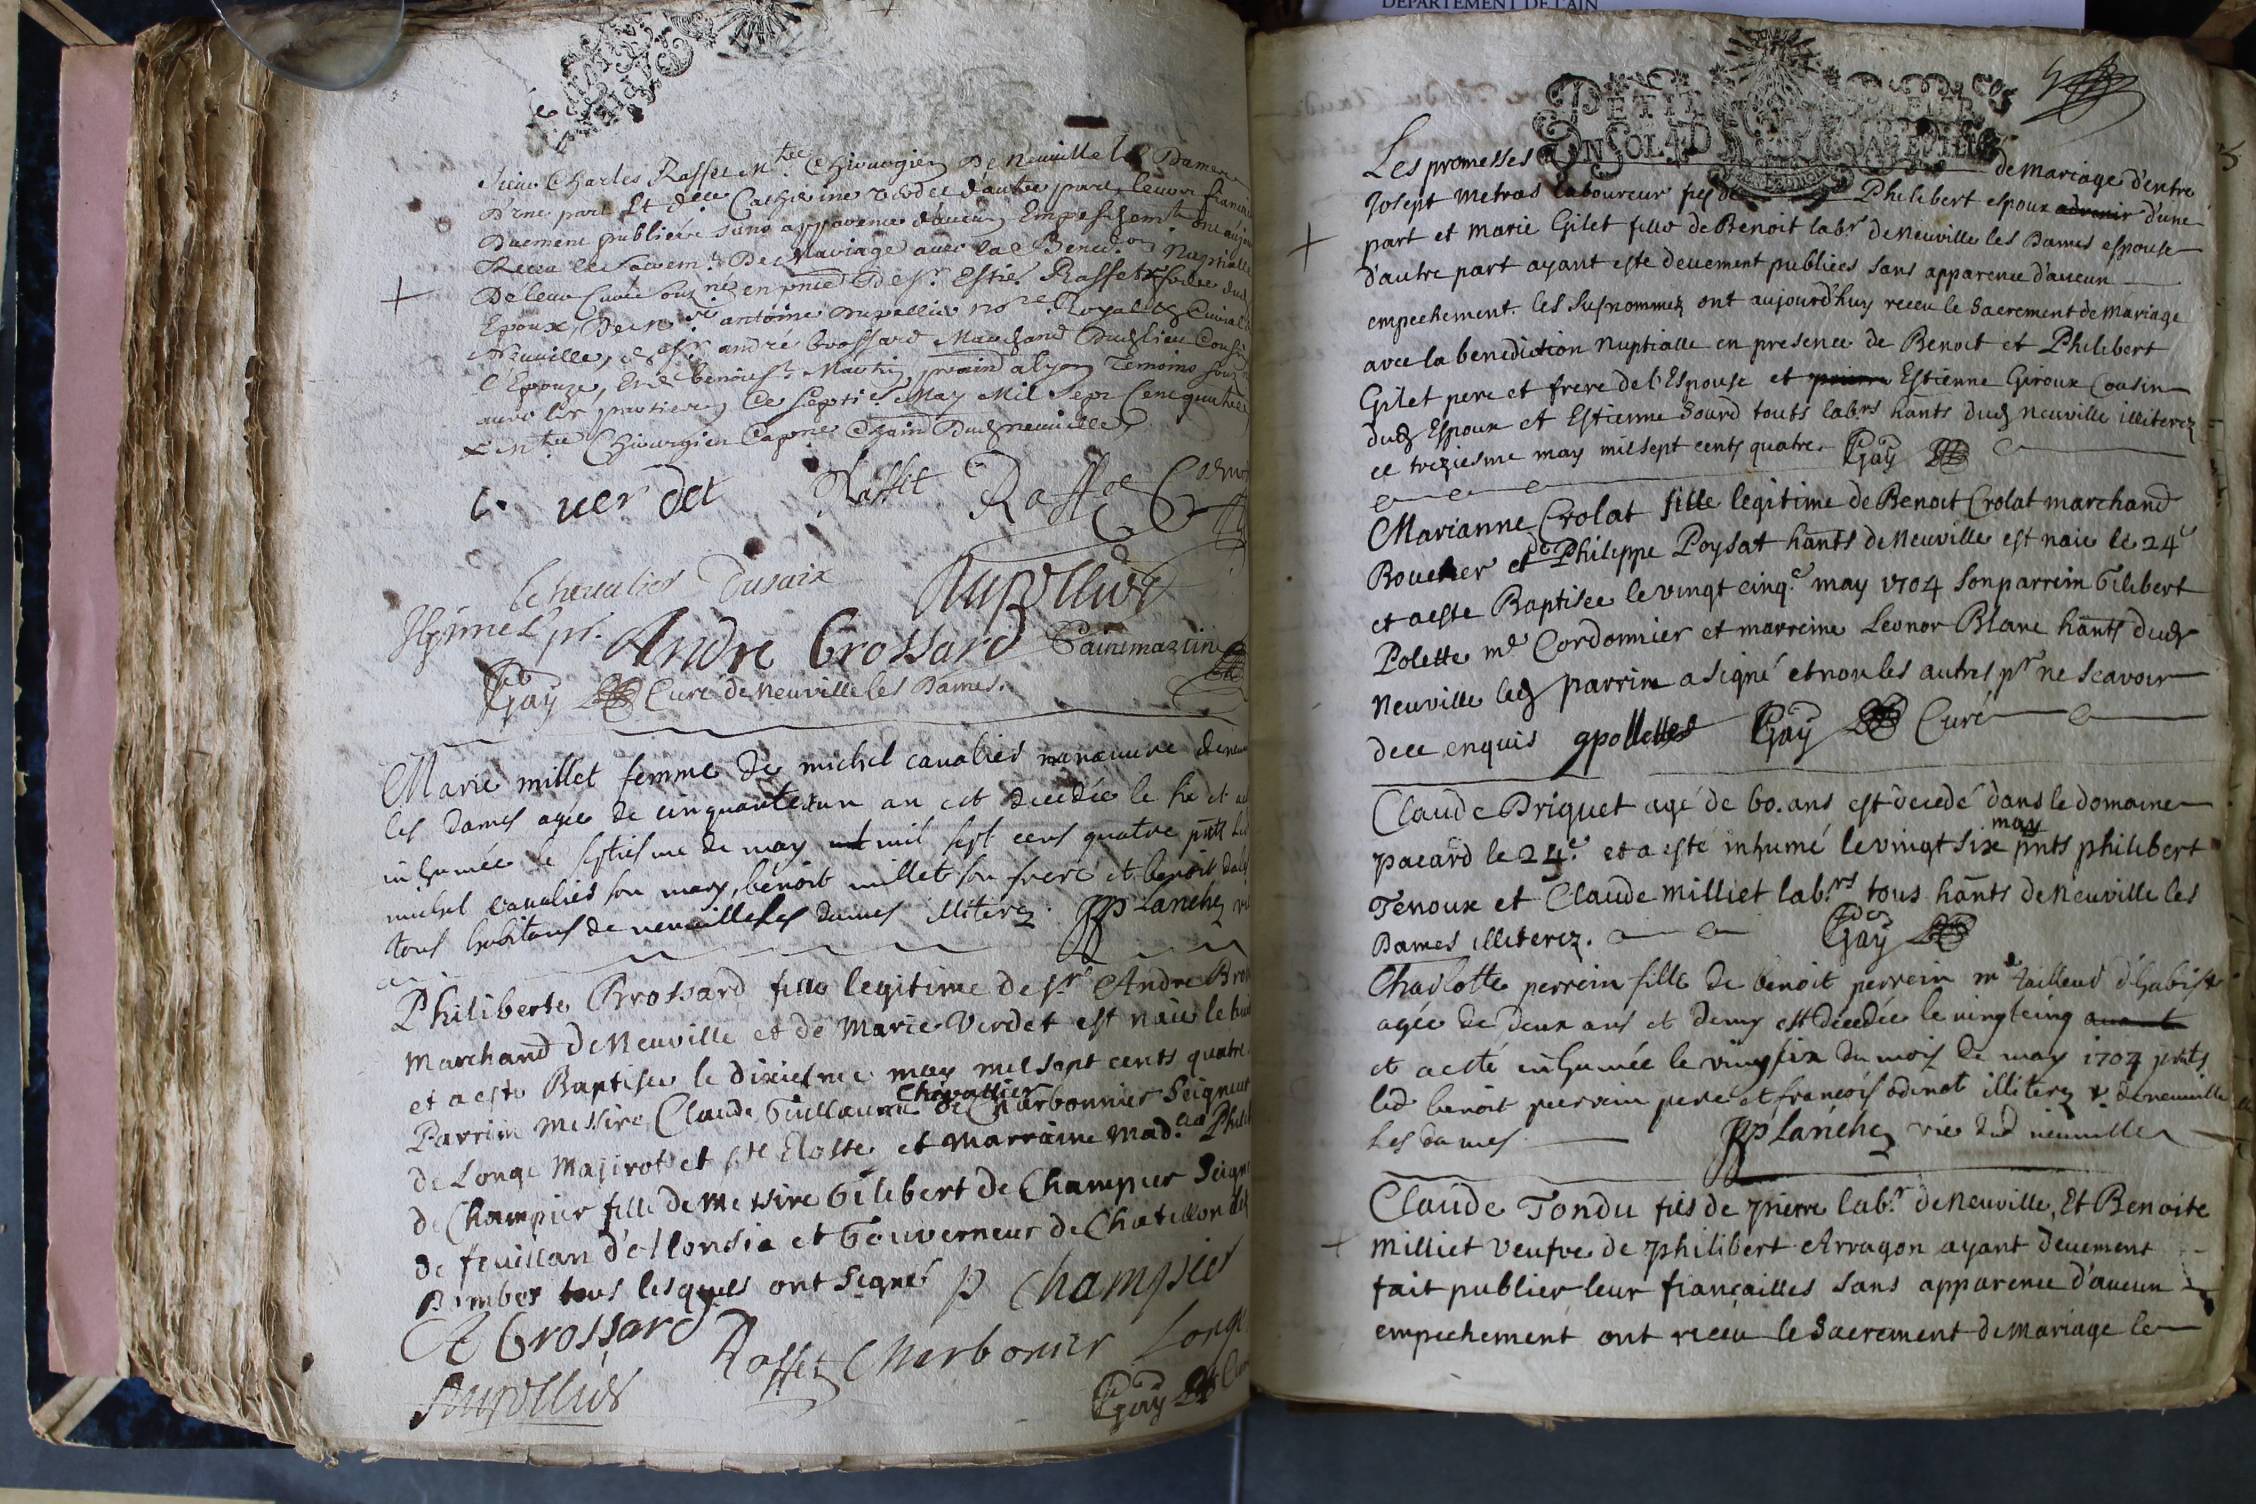 Sieur Charles Rasset m.tre Chirurgien De neuville les Dames
D'une part Et d.lle Catherine verdet d'autre part, leurs fiançai
Duement publiéés sans apparence d'aucun Empeschem.t ont aujou
Receu le Sacrem.t De Mariage avec la Bened.on Nuptialle
De leur Curé sousné en pnce De s.r Estie Rasset frere dud
Epoux, De m.re antoine Dupellier no.re Royal
Neuville, s.r andré Brossard Marchand Dud lieu Cousin
l'Epouze, Et benoist Martin
avec les parties Ce septie May Mil Sept Cent quatre
m.tre Chirurgien Dud neuville
C. verdet Rasset Rasset
le chevalier Dusaix Dupellier
André Brossard
Gay Curé de Neuville les Dames.
Marie millet femme de michel cavalier manœuvre de neu
les dames agée de cinquante un an est decedée le six et a
inhumée le septiesme de may mil sept cens quatre pnts led
michel cavalier son mary, benoit millet son frere et benoit
tous habitans de neuville les dames illiterez. JP Lanchez vi
Philiberte Brossard fille legitime de s.r Andre Bros
marchand de Neuville et de Marie Verdet est naïe le huit
et a esté Baptisée le dixiesme may mil sept cents quatre.
Parrin Messire Claude Guillaume Chevallier de Charbonnier Seigneur
de Longe Majirot et s.te Eloste et marraine mad.lle Phili
de Champier fille de Messire Gilibert de Champier Seign
de feuillan d'ellondie et Gouverneur de Chatillon les
Dombes tous lesquels ont signé P Champier
A Brossard Rasset Charbonier Longe
Dupellier Gay Curé
DEPARTEMENT DE L'AIN
PETIT PAPIER
UN SOL 4 D LA FEUILLE
Les promesses de mariage d'entre
Josept Metras laboureur fils de Philibert espoux advenir d'une
part et Marie Gilet fille de Benoit lab.r de Neuville les Dames espouse
d'autre part ayant esté deuement publiées sans apparence d'aucun
empechement. les susnommez ont aujourd'huy receu le Sacrement de Mariage
avec la benediction nuptialle en presence de Benoit et Philibert
Gilet pere et frere de l'Espouse et Estienne Giroux Cousin
dud Espoux et Estienne Sourd touts lab.rs hants dud neuville illiterez
ce treziesme may mil sept cents quatre. Gay
Marianne Crolat fille legitime de Benoit Crolat marchand
Boucher et de Philippe Poysat hants de Neuville est naïe le 24e
et a esté Baptisée le vingt cinq.e may 1704 son parrein Gilibert
Polette m.e Cordonnier et marreine Leonor Blanc hants dud
Neuville led parrin a signé et non les autres p.r ne scavoir
de ce enquis gpollettes Gay Curé
Claude Priquet agé de 60. ans est decedé dans le domaine
pacard le 24.e et a esté inhumé le vingt six may pnts philibert
Tenoux et Claude Milliet lab.rs tous hants de Neuville les
Dames illiterez. Gay
Charlotte perrein fille de benoit perrein m.e tailleur d'habist
agée de deux ans et demy est decedée le vingt cinq
et a esté inhumée le vingt six du mois de may 1704 pnts
led benoit perrein pere et françois odinot illiterez v. de neuville
les dames JP Lanchez vic dud neuville
Claude Tondu fils de pierre lab.r de Neuville, Et Benoite
Milliet veufve de philibert Arragon ayant deuement
fait publier leur fiançailles sans apparence d'aucun
empechement ont receu le Sacrement de Mariage le